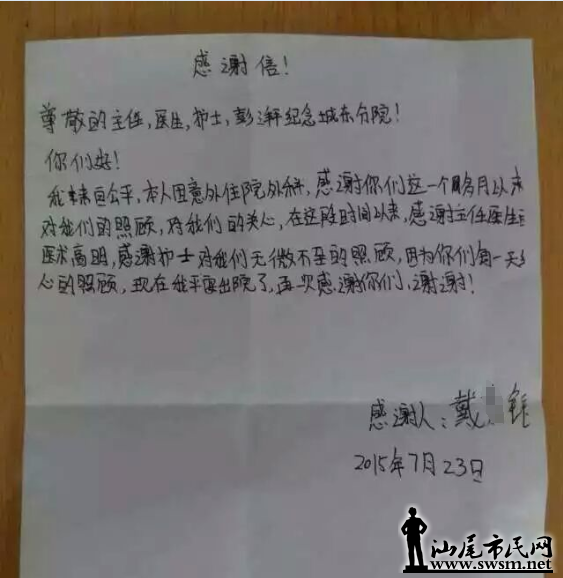 感谢信！
尊敬的主任，医生，护士，彭湃纪念城东分院！
你们好！
我来自公平，本人因意外住院外科，感谢你们这一个多月以来
对我们的照顾，对我们的关心，在这段时间以来，感谢主任医生
医术高明，感谢护士对我们无微不至的照顾，因为你们每一天
心的照顾，现在我平要出院了，再一次感谢你们，谢谢！
感谢人：戴
2015年7月23日
汕尾市民网
www.swsm.net